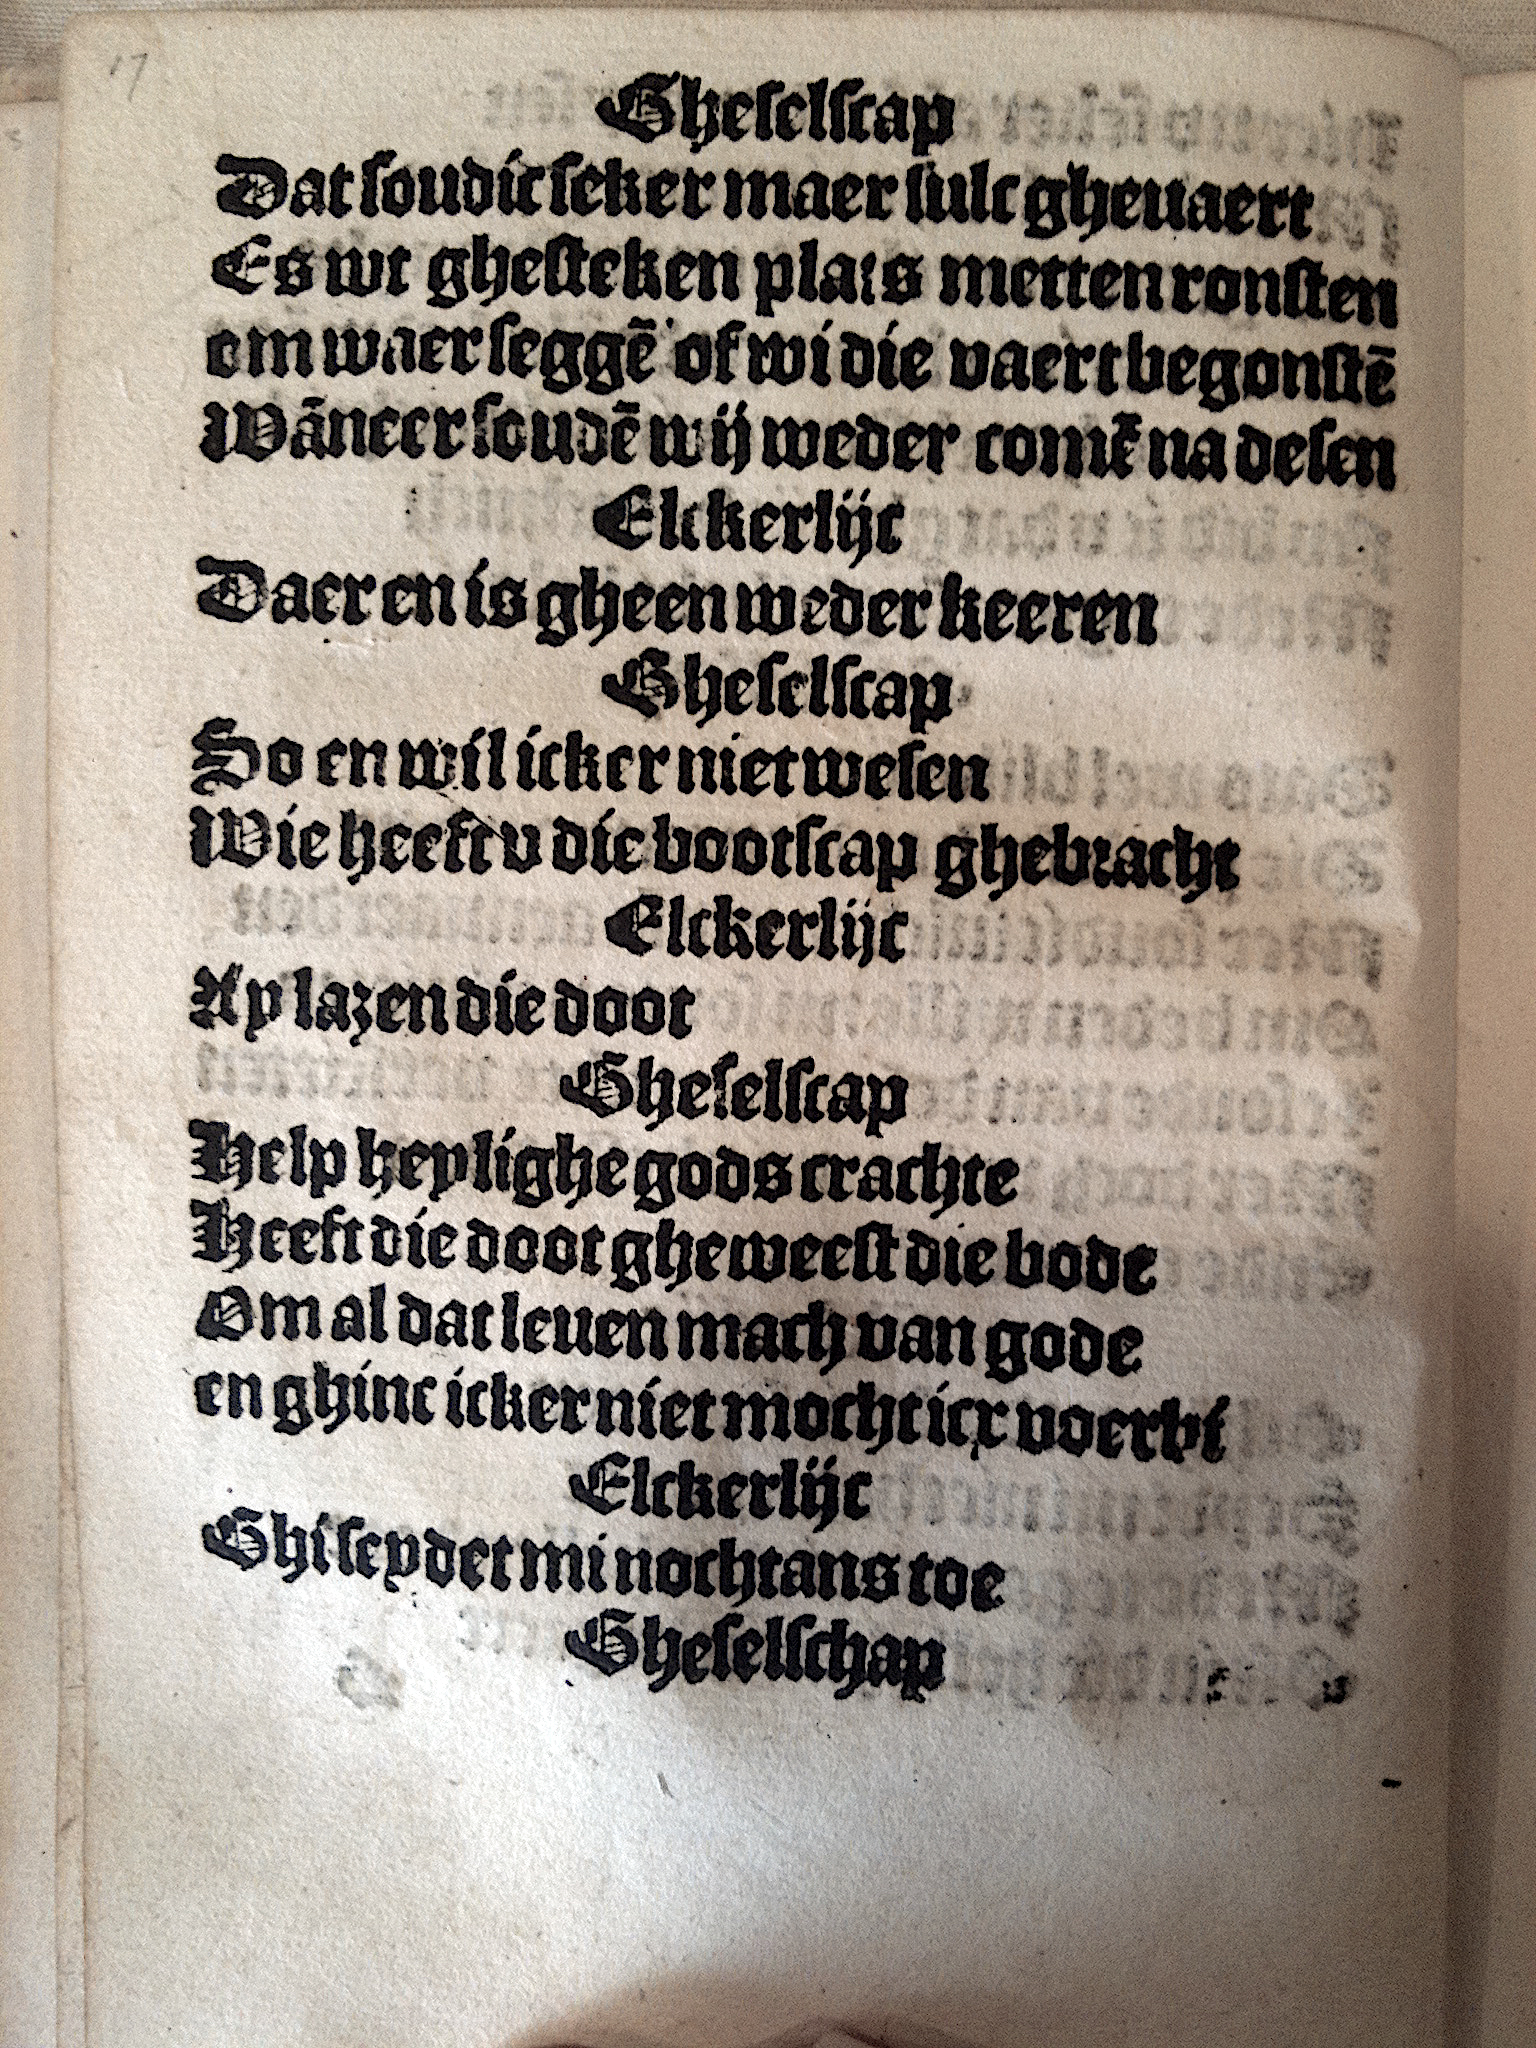 17
Gheselscap
Dat soudic seker maer sulc gheuaert
Es wt ghesteken plais metten ronsten
om waer seggē of wi die vaert begonstē
Wāneer soudē wij weder comē na desen
Elckerlijc
Daer en is gheen weder keeren
Gheselscap
So en wil icker niet wesen
Wie heeft v die bootscap ghebracht
Elckerlijc
Ay lazen die doot
Gheselscap
Help heylighe gods crachte
Heeft die doot gheweest die bode
Om al dat leuen mach van gode
en ghinc icker niet mocht icx voerbi
Elckerlijc
Ghi seydet mi nochtans toe
Gheselschap